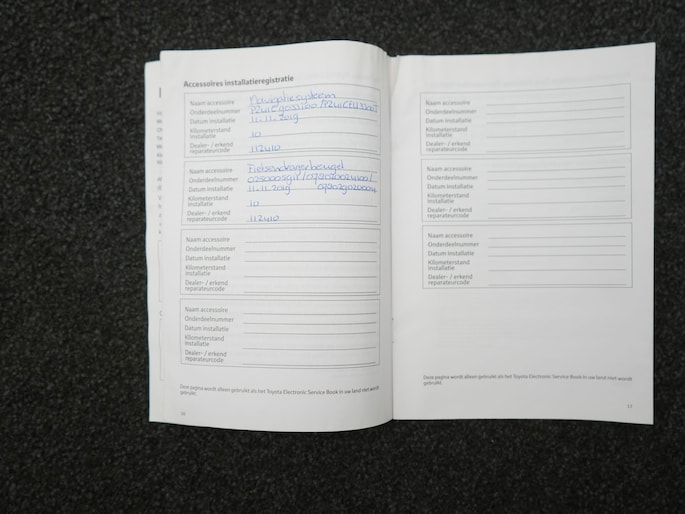 Accessoires installatieregistratie
Naam accessoire Navigatiesysteem
Onderdeelnummer
Datum installatie 11-11-2019
Kilometerstand installatie 10
Dealer- / erkend reparateurcode 112410
Naam accessoire Fietsendragerbeugel
Onderdeelnummer
Datum installatie 11-11-2019
Kilometerstand installatie 10
Dealer- / erkend reparateurcode 112410
Naam accessoire
Onderdeelnummer
Datum installatie
Kilometerstand
installatie
Dealer- / erkend
reparateurcode
Naam accessoire
Onderdeelnummer
Datum installatie
Kilometerstand
installatie
Dealer- / erkend
reparateurcode
Deze pagina wordt alleen gebruikt als het Toyota Electronic Service Book in uw land niet wordt
gebruikt.
16
Naam accessoire
Onderdeelnummer
Datum installatie
Kilometerstand
installatie
Dealer- / erkend
reparateurcode
Naam accessoire
Onderdeelnummer
Datum installatie
Kilometerstand
installatie
Dealer- / erkend
reparateurcode
Naam accessoire
Onderdeelnummer
Datum installatie
Kilometerstand
installatie
Dealer- / erkend
reparateurcode
Deze pagina wordt alleen gebruikt als het Toyota Electronic Service Book in uw land niet wordt
gebruikt.
17